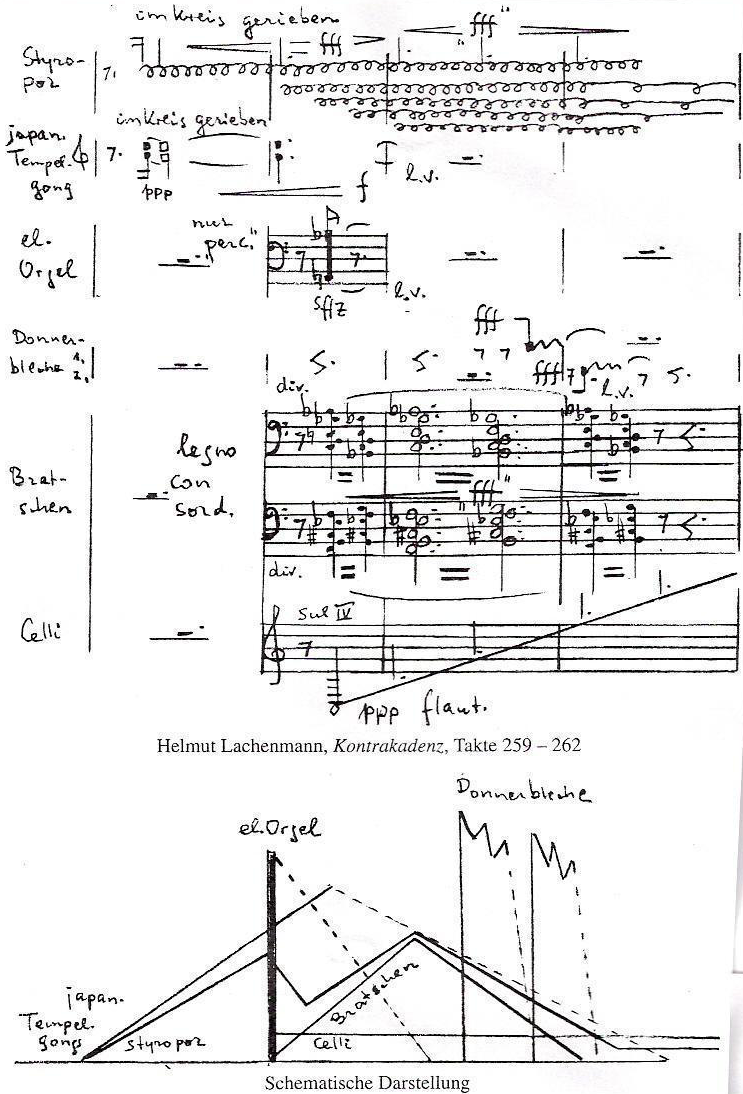 im Kreis gerieben
fff
"fff"
Styro-
por
7.
im Kreis gerieben
japan.
Tempel-
gong
7.
ppp
f
l.v.
el.
Orgel
nur
perc."
sffz
l.v.
Donner-
bleche 1.
2.
fff
fff
l.v.
div.
Brat-
schen
legno
con
sord.
"fff"
div.
Celli
Sul IV
ppp flaut.
Helmut Lachenmann, Kontrakadenz, Takte 259 – 262
Donnerbleche
el. Orgel
japan.
Tempel-
gongs
Styropor
Bratschen
Celli
Schematische Darstellung